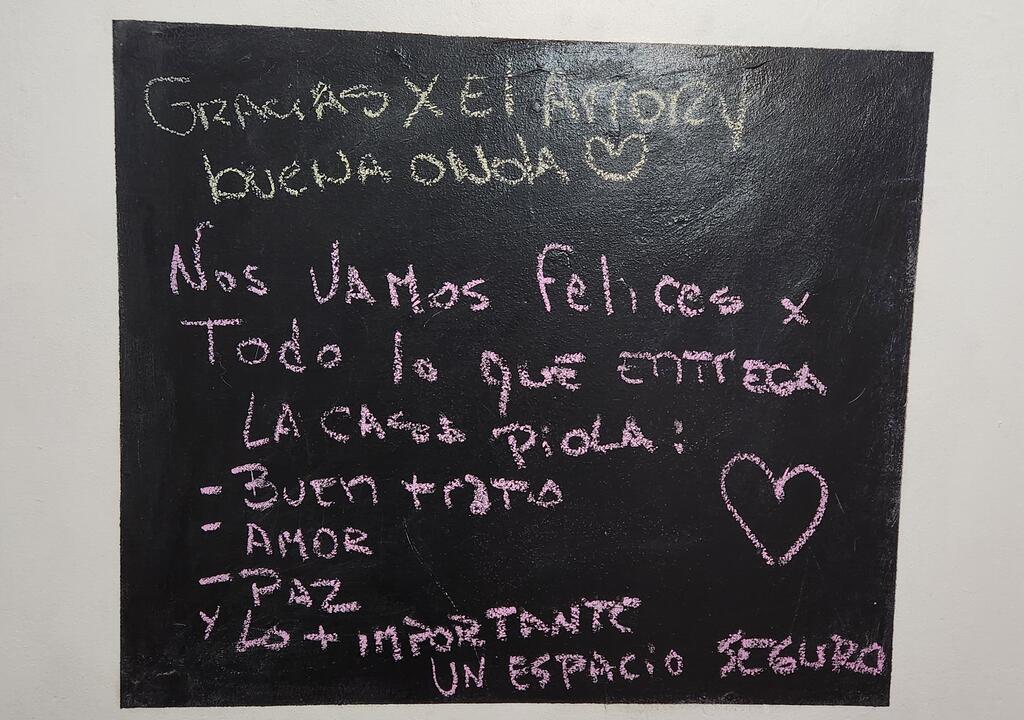 GRACIAS X El AMOR y
buena onda ♡
Nos VAMOS felices x
Todo lo que entrega
LA CASA PiOLA:
- Buen trato
- AMOR
- PAZ
y Lo + IMPORTANTE
UN ESPACiO SEGURO